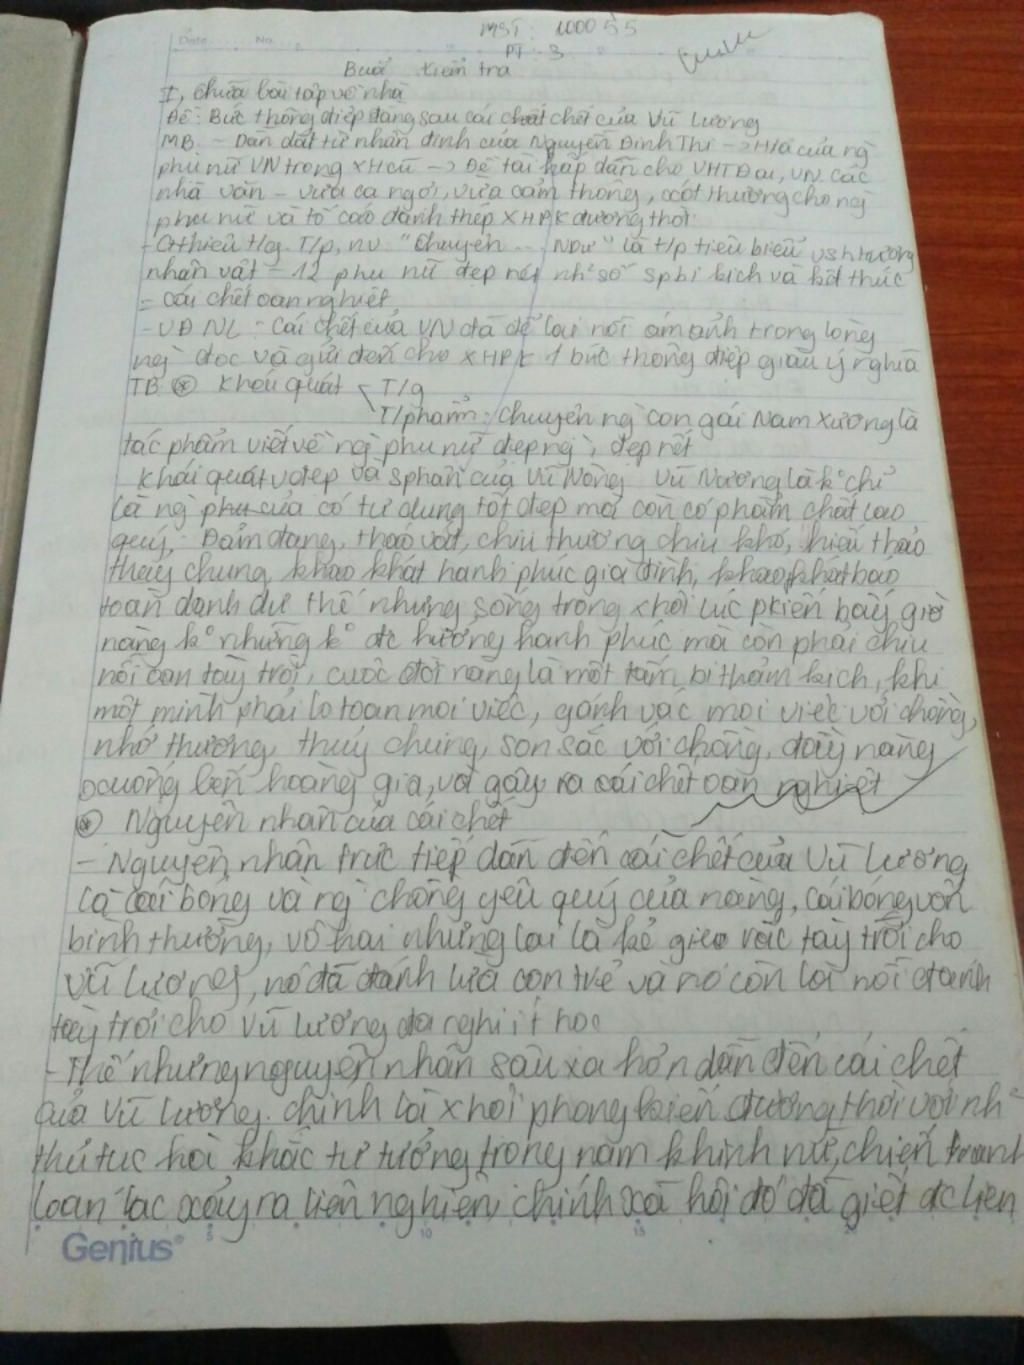 Date ........ No. ........
MST : 100055
PT : 3
Buổi kiểm tra
I, Chữa bài tập về nhà
Đề : Bức thông điệp đằng sau cái chết của Vũ Lương
MB. - Dẫn dắt từ nhận định của Nguyễn Đình Thi -> H/a của ng
phụ nữ VN trong XH cũ -> Đề tài hấp dẫn cho VHTĐại, VN các
nhà văn - vừa ca ngợi, vừa cảm thông, xót thương cho ng
phụ nữ và tố cáo đanh thép XHPK đương thời
- Gthiệu t/g. T/p, nv "Chuyện ... Ndư" là t/p tiêu biểu
nhân vật - 12 phụ nữ đẹp nết số sp bi kịch và kết thúc
= cái chết oan nghiệt
- VĐ NL : Cái chết của VN đã để lại nỗi ám ảnh trong lòng
ng đọc và gửi đến cho XHPK 1 bức thông điệp giàu ý nghĩa
TB * Khái quát T/g
T/phẩm : Chuyện ng con gái Nam Xương là
tác phẩm viết về ng phụ nữ đẹp ng, đẹp nết
Khái quát vđẹp và sphận của Vũ Nương Vũ Nương là ko chỉ
là ng có tư dung tốt đẹp mà còn có phẩm chất cao
quý. Đảm đang, tháo vát, chịu thương chịu khó, hiếu thảo
thủy chung, khao khát hạnh phúc gia đình, khao khát bảo
toàn danh dự thế nhưng sống trong xhội lúc pkiến bấy giờ
nàng ko những ko đc hưởng hạnh phúc mà còn phải chịu
nỗi oan tày trời, cuộc đời nàng là một tấm bi thảm kịch, khi
một mình phải lo toan mọi việc, gánh vác mọi việc với chồng,
nhớ thương, thủy chung, son sắc với chồng, đẩy nàng
xuống bến hoàng gia, và gây ra cái chết oan nghiệt
* Nguyên nhân của cái chết
- Nguyên nhân trực tiếp dẫn đến cái chết của Vũ Lương
là cái bóng và ng chồng yêu quý của nàng, cái bóng vốn
bình thường, vô hại nhưng lại là kẻ gieo rắc tày trời cho
Vũ Lương, nó đã đánh lừa con trẻ và nó còn là nỗi
tày trời cho Vũ Lương
- Thế nhưng nguyên nhân sâu xa hơn dẫn đến cái chết
của Vũ Lương. chính là xhội phong kiến đương thời với
thủ tục hà khắc tư tưởng trọng nam khinh nữ, chiến tranh
loạn lạc xảy ra liên nghiên, chính xã hội đó đã giết
Genius
5 10 15 20